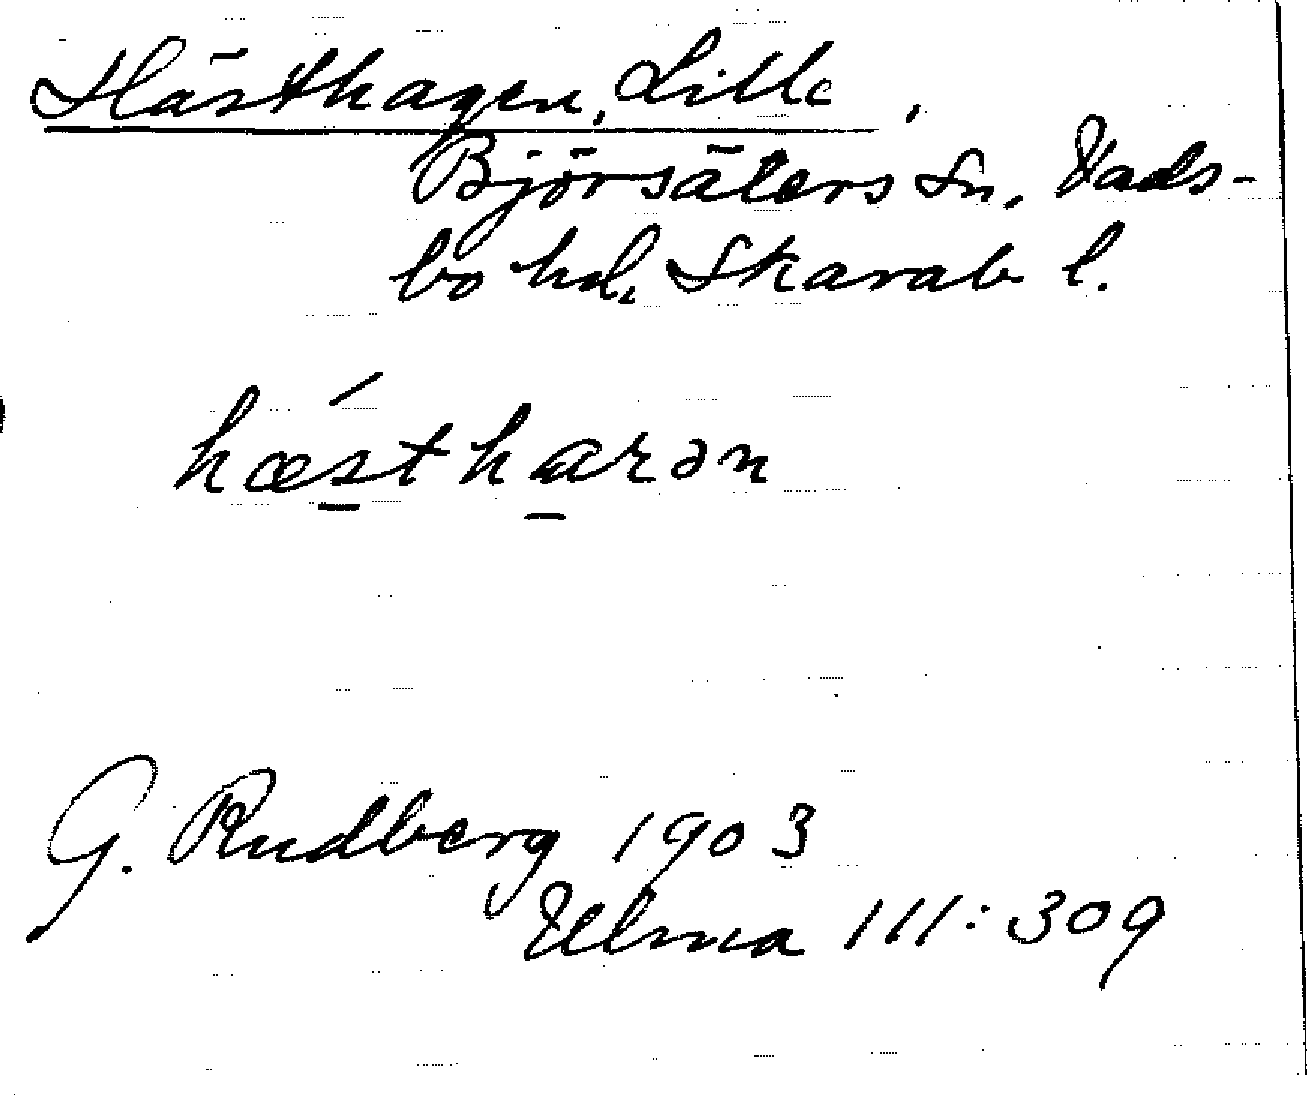 Hästhagen, Lille,
Björsäters Sn. Vads-
bo hd. Skarab l.
hæsthaꞅən
G. Rudberg 1903
Ulma 111:309